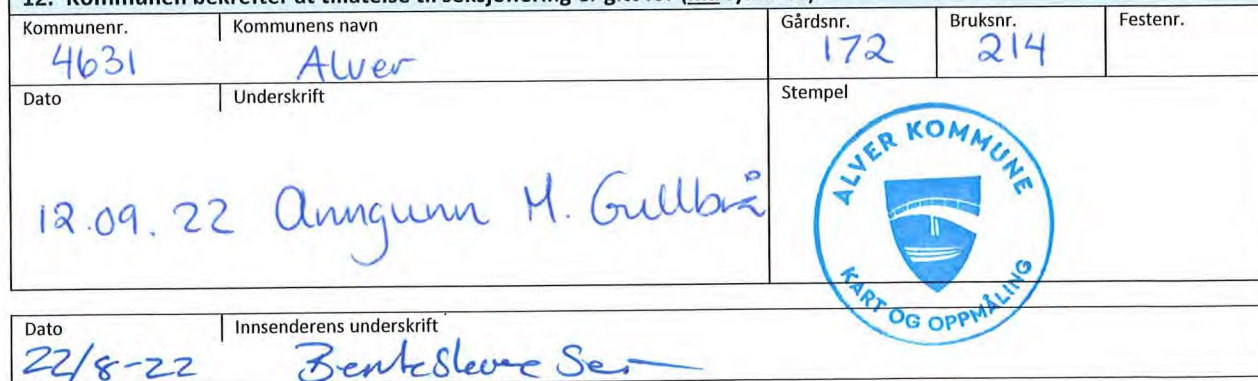 12. Kommunen bekrefter at tillatelse til seksjonering er gitt for
Kommunenr. Kommunens navn Gårdsnr. Bruksnr. Festenr.
4631 Alver 172 214
Dato Underskrift Stempel
12.09.22 Anngunn M. Gullbrå
ALVER KOMMUNE
KART OG OPPMÅLING
Dato Innsenderens underskrift
22/8-22